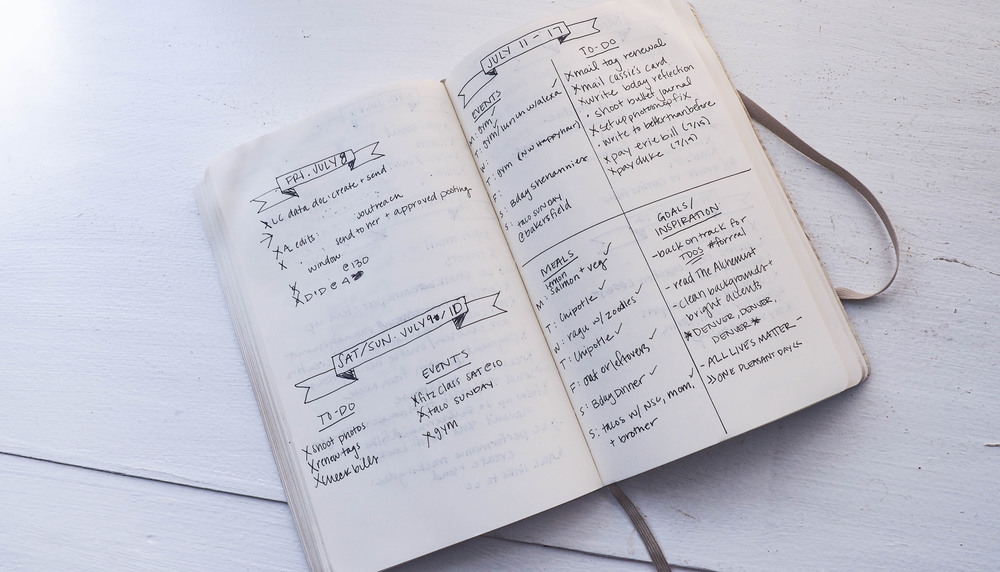 FRI. JULY 8
X LC data doc: create + send
→ : outreach
X A edits: send to her + approved posting
X window
X @ 130
X DID @ 4
SAT/SUN. JULY 9/10
TO-DO
X shoot photos
X renew tags
X check bills
EVENTS
X fitz class SAT @ 10
X taco SUNDAY
X gym
JULY 11 - 17
EVENTS
M: gym ✓
T: gym/lunch w/alexa ✓
W:
T: gym (NW happy hour)
F:
S: Bday shenannies
S: taco SUNDAY
@bakersfield
TO-DO
X mail tag renewal
X mail cassie's card
X write bday reflection
• shoot bullet journal
X set up photoshop fix
• write to betterthanbefore
X pay erie bill (7/15)
X pay duke (7/15)
MEALS
M: lemon salmon + veg ✓
T: Chipotle ✓
W: ragu w/ zoodles ✓
T: Chipotle ✓
F: out or leftovers ✓
S: Bday Dinner ✓
S: tacos w/ NSC, mom, ✓
+ brother
GOALS/
INSPIRATION
- back on track for
TDOS #forreal
- read The Alchemist
- clean backgrounds +
bright accents
* DENVER, DENVER,
DENVER *
- ALL LIVES MATTER -
>> ONE PLEASANT DAY <<